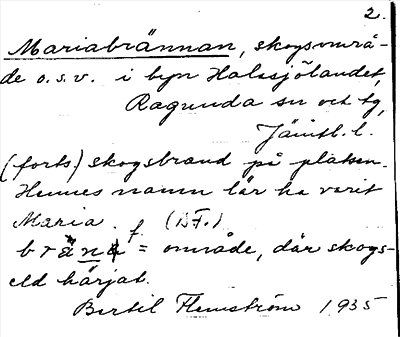 2.
Mariabrännan, skogsområ-
de o.s.v. i byn Halasjölandet,
Ragunda sn och tg,
Jämtl. l.
(forts) skogsbrand på platsen.
Hennes namn lär ha varit
Maria. (D.F.)
f. = område, där skogs-
eld härjat.
Bertil Flemström 1935